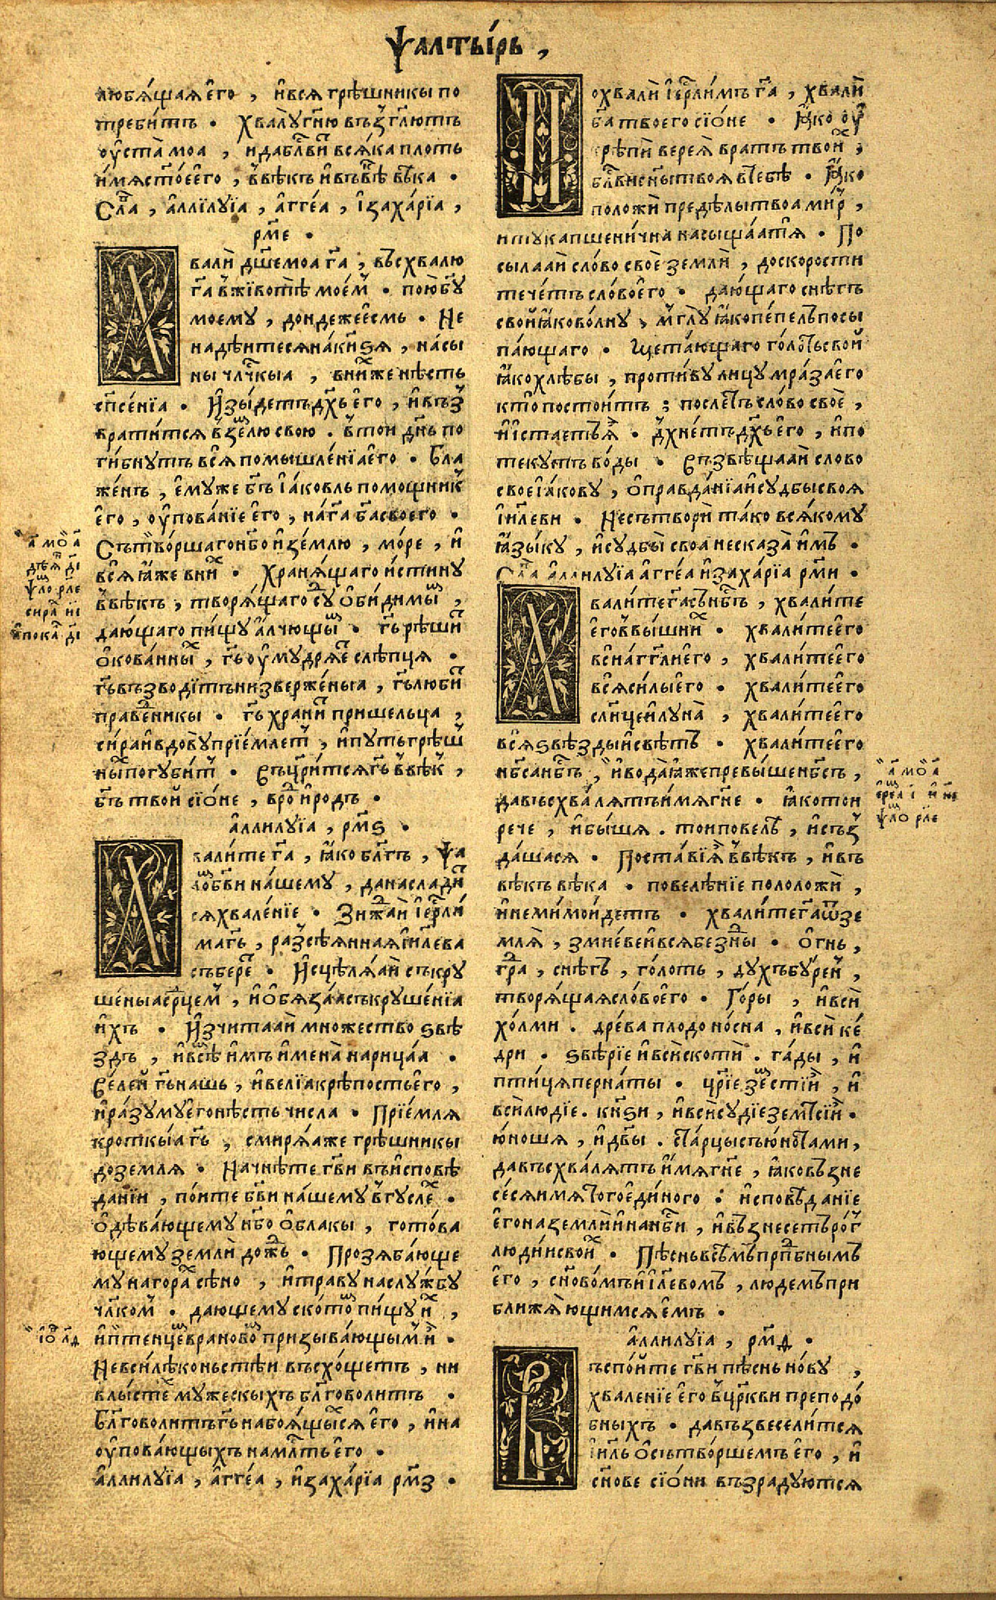 Ѱалтырь ,
любящая єго , ився грѣшникы по
требитъ · Хвалу гню възглютъ
оуста моа , и да блвитъ всяка плоть
имя стоє єго , ввѣкъ ивъвѣ вѣка ·
Сла , аллилуїа , аггеа , ізахарїа ,
рме ·
Хвали дше моа га , въсхвалю
га вживотѣ моем · пою бгу
моему , дондеже єсмь · Не
надѣитеся на кнѕя , на сы
ны члчкыа , вних же нѣсть
спсенїа · Изыдетъ дхъ єго , ивъз
вратится вземлю свою . втои днь по
гибнутъ вся помышленїа єго · Бла
женъ , ємуже бгъ іаковль помощник
єго , оупованїе єго , на га ба своего ·
Сътворшаго нбо и землю , море , и
вся яже вних · Хранящаго истину
ввѣкъ , творящаго суд обидимым ,
дающаго пищу алчющым · гь рѣшит
окованныя , гь оумудряет слѣпця ·
гь възводитъ низверженыа , гь любит
праведникы · гь хранит пришельца ,
сира и вдову прїемлет , и путь грѣш
ных погубит · Въцрится гь ввѣк ,
бгъ твои сїоне , врод и родъ ·
аллилуїа , рмѕ ·
Хвалите га , яко блгъ , ѱа
ломъ бви нашему , да насладит
ся хваленїе · Зиждаи іерли
ма гь , разсѣянная іилева
събере · Исцѣляаи съкру
шеныа срцем , и обязаа съкрушенїа
ихъ · Изчитааи множество ѕвѣ
здъ , и всѣм имъ имена нарицаа ·
Велеи гь нашь , и велїа крѣпость єго ,
и разуму єго нѣсть числа · Прїемля
кроткыа гь , смиряа же грѣшникы
до земля · Начнѣте гви въ исповѣ
данїи , поите бви нашему вгуслех ·
Одѣвающему нбо облакы , готова
ющему земли дождь · Прозябающе
му на горах сѣно , и траву на службу
члком · дающему скотом пищу их ,
и птенцем врановом призывающым и ·
Не всилѣ коньстѣи въсхощетъ , ни
влыстѣх мужескыхъ блговолитъ ·
Блговолитъ гь на боящыхся єго , и на
оуповающыхъ на млть єго ·
аллилуїа , аггеа , и захарїа рмз ·
Похвали іерлимъ га , хвали
ба твоего сїоне · Яко оу
крѣпи верея вратъ твоих ,
блви сны твоя втебѣ · Яко
положи предѣлы твоа мир ,
и тука пшенична насыщаа тя · По
сылааи слово своє земли , до скорости
течетъ слово єго · дающаго снѣгъ
свои яко волну , мглу яко пепелъ посы
пающаго · Щетающаго голоть свои
яко хлѣбы , противу лицу мраза єго
кто постоитъ ; послетъ слово своє ,
и истаетъ я · дхнетъ дхъ єго , и по
текутъ воды · Възвѣщааи слово
своє іакову , оправданїа и судбы своя
іилеви · Не сътвори тако всякому
языку , и судбы своа не сказа имъ ·
Сла аллилуїа аггеа и захарїа рми ·
Хвалите га съ нбсъ , хвалите
єго ввышних · хвалите єго
вси агглы єго , хвалите єго
вся силы єго · хвалите єго
слнце и луна , хвалите єго
вся ѕвѣзды и свѣтъ · хвалите єго
нбса нбсъ , и вода яже превыше нбсъ ,
да въсхвалятъ имя гне · яко тои
рече , и быша . тои повелѣ , и създ
дашася · Постави я ввѣкъ , и въ
вѣкъ вѣка · повелѣнїе положи ,
и не мимоидетъ · хвалите га от зе
мля , змиеве и вся бездны · Огнь ,
град , снѣгъ , голоть , духъ бурен ,
творящая слово єго · Горы , и вси
холми . древа плодоносна , и вси ке
дри · ѕвѣрїе и вси скоти . гады , и
птицы пернаты · црїе земстїи , и
вси людїе . кнѕи , и вси судїе земстїи ·
юноша , и двы . старцы съ юнотами ,
да въсхвалятъ имя гне , яко възне
сеся имя того єдиного : исповѣданїе
єго на земли и на нбси , и възнесетъ рог
людии своих · Пѣснь всѣмъ прпбнымъ
єго , сновомъ іилевомъ , людемъ при
ближающимся ємъ ·
аллилуїа , рмд ·
Въспоите гви пѣснь нову ,
хваленїе єго вцркви преподо
бныхъ · да възвеселится
іиль о сътворшемъ єго , и
снове сїони възрадуются